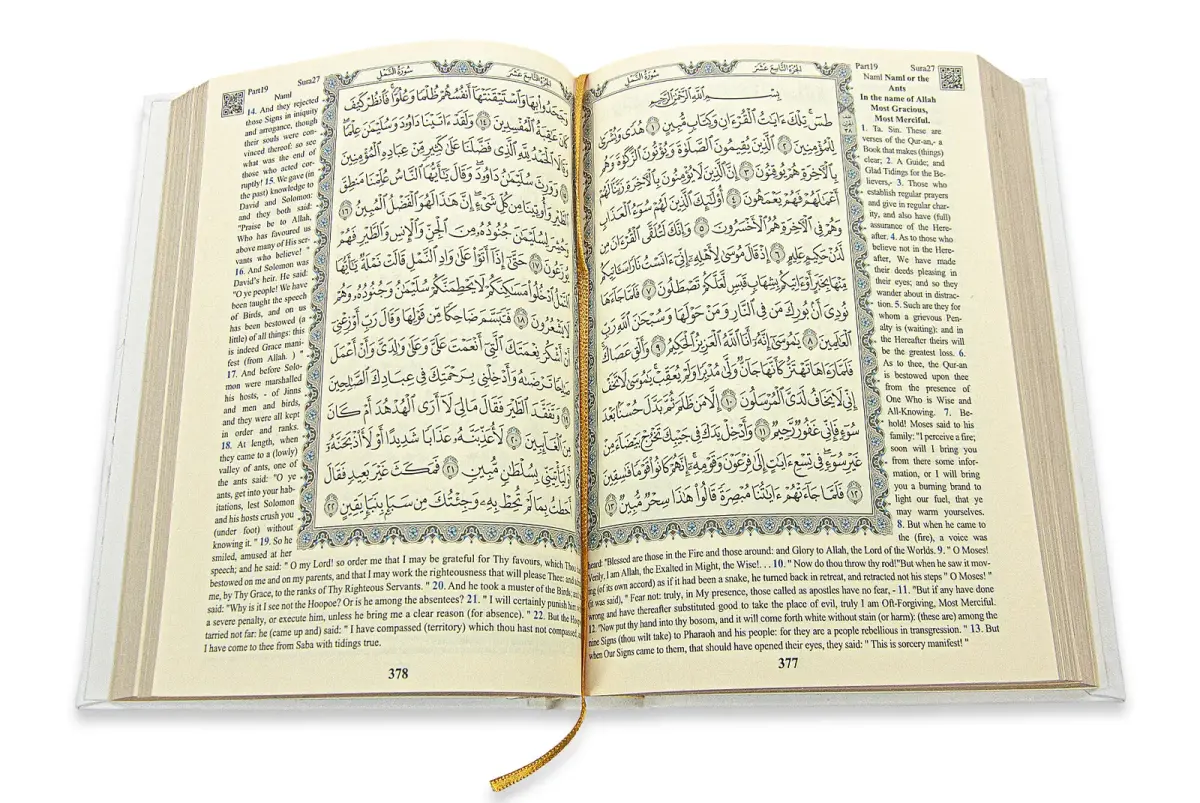 Part19 Sura27
سُورَةُ النَّمۡلِ الجُزءُ التَّاسِعَ عَشَرَ
بِسۡمِ ٱللَّهِ ٱلرَّحۡمَٰنِ ٱلرَّحِيمِ
طسٓ تِلۡكَ ءَايَٰتُ ٱلۡقُرۡءَانِ وَكِتَابٖ مُّبِينٍ ١ هُدٗى وَبُشۡرَىٰ
لِلۡمُؤۡمِنِينَ ٢ ٱلَّذِينَ يُقِيمُونَ ٱلصَّلَوٰةَ وَيُؤۡتُونَ ٱلزَّكَوٰةَ وَهُم
بِٱلۡأٓخِرَةِ هُمۡ يُوقِنُونَ ٣ إِنَّ ٱلَّذِينَ لَا يُؤۡمِنُونَ بِٱلۡأٓخِرَةِ زَيَّنَّا لَهُمۡ
أَعۡمَٰلَهُمۡ فَهُمۡ يَعۡمَهُونَ ٤ أُوْلَٰٓئِكَ ٱلَّذِينَ لَهُمۡ سُوٓءُ ٱلۡعَذَابِ
وَهُمۡ فِي ٱلۡأٓخِرَةِ هُمُ ٱلۡأَخۡسَرُونَ ٥ وَإِنَّكَ لَتُلَقَّى ٱلۡقُرۡءَانَ مِن
لَّدُنۡ حَكِيمٍ عَلِيمٍ ٦ إِذۡ قَالَ مُوسَىٰ لِأَهۡلِهِۦٓ إِنِّيٓ ءَانَسۡتُ نَارٗا سَـَٔاتِيكُم
مِّنۡهَا بِخَبَرٍ أَوۡ ءَاتِيكُم بِشِهَابٖ قَبَسٖ لَّعَلَّكُمۡ تَصۡطَلُونَ ٧ فَلَمَّا جَآءَهَا
نُودِيَ أَنۢ بُورِكَ مَن فِي ٱلنَّارِ وَمَنۡ حَوۡلَهَا وَسُبۡحَٰنَ ٱللَّهِ رَبِّ
ٱلۡعَٰلَمِينَ ٨ يَٰمُوسَىٰٓ إِنَّهُۥٓ أَنَا ٱللَّهُ ٱلۡعَزِيزُ ٱلۡحَكِيمُ ٩ وَأَلۡقِ عَصَاكَۚ
فَلَمَّا رَءَاهَا تَهۡتَزُّ كَأَنَّهَا جَآنّٞ وَلَّىٰ مُدۡبِرٗا وَلَمۡ يُعَقِّبۡۚ يَٰمُوسَىٰ لَا تَخَفۡ
إِنِّي لَا يَخَافُ لَدَيَّ ٱلۡمُرۡسَلُونَ ١٠ إِلَّا مَن ظَلَمَ ثُمَّ بَدَّلَ حُسۡنَۢا بَعۡدَ
سُوٓءٖ فَإِنِّي غَفُورٞ رَّحِيمٞ ١١ وَأَدۡخِلۡ يَدَكَ فِي جَيۡبِكَ تَخۡرُجۡ بَيۡضَآءَ مِنۡ
غَيۡرِ سُوٓءٖۖ فِي تِسۡعِ ءَايَٰتٍ إِلَىٰ فِرۡعَوۡنَ وَقَوۡمِهِۦٓۚ إِنَّهُمۡ كَانُواْ قَوۡمٗا فَٰسِقِينَ
١٢ فَلَمَّا جَآءَتۡهُمۡ ءَايَٰتُنَا مُبۡصِرَةٗ قَالُواْ هَٰذَا سِحۡرٞ مُّبِينٞ ١٣
Naml Naml or the
Ants
In the name of Allah
Most Gracious,
Most Merciful.
1. Ta. Sin. These are
verses of the Qur-an,- a
Book that makes (things)
clear; 2. A Guide; and
Glad Tidings for the Be-
lievers,- 3. Those who
establish regular prayers
and give in regular char-
ity, and also have (full)
assurance of the Here-
after. 4. As to those who
believe not in the Here-
after, We have made
their deeds pleasing in
their eyes; and so they
wander about in distrac-
tion. 5. Such are they for
whom a grievous Pen-
alty is (waiting); and in
the Hereafter theirs will
be the greatest loss. 6.
As to thee, the Qur-an
is bestowed upon thee
from the presence of
One Who is Wise and
All-Knowing. 7. Be-
hold! Moses said to his
family: "I perceive a fire;
soon will I bring you
from there some infor-
mation, or I will bring
you a burning brand to
light our fuel, that ye
may warm yourselves.
8. But when he came to
the (fire), a voice was
heard: "Blessed are those in the Fire and those around: and Glory to Allah, the Lord of the Worlds. 9. " O Moses!
Verily, I am Allah, the Exalted in Might, the Wise!. . . 10. " Now do thou throw thy rod!"But when he saw it mov-
ing (of its own accord) as if it had been a snake, he turned back in retreat, and retracted not his steps " O Moses! "
(it was said), " Fear not: truly, in My presence, those called as apostles have no fear, - 11. "But if any have done
wrong and have thereafter substituted good to take the place of evil, truly I am Oft-Forgiving, Most Merciful.
12. "Now put thy hand into thy bosom, and it will come forth white without stain (or harm): (these are) among the
nine Signs (thou wilt take) to Pharaoh and his people: for they are a people rebellious in transgression. " 13. But
when Our Signs came to them, that should have opened their eyes, they said: " This is sorcery manifest! "
377
Part19 Sura27
سُورَةُ النَّمۡلِ الجُزءُ التَّاسِعَ عَشَرَ
وَجَحَدُواْ بِهَا وَٱسۡتَيۡقَنَتۡهَآ أَنفُسُهُمۡ ظُلۡمٗا وَعُلُوّٗاۚ فَٱنظُرۡ كَيۡفَ
كَانَ عَٰقِبَةُ ٱلۡمُفۡسِدِينَ ١٤ وَلَقَدۡ ءَاتَيۡنَا دَاوُۥدَ وَسُلَيۡمَٰنَ عِلۡمٗاۖ
وَقَالَا ٱلۡحَمۡدُ لِلَّهِ ٱلَّذِي فَضَّلَنَا عَلَىٰ كَثِيرٖ مِّنۡ عِبَادِهِ ٱلۡمُؤۡمِنِينَ
١٥ وَوَرِثَ سُلَيۡمَٰنُ دَاوُۥدَۖ وَقَالَ يَٰٓأَيُّهَا ٱلنَّاسُ عُلِّمۡنَا مَنطِقَ
ٱلطَّيۡرِ وَأُوتِينَا مِن كُلِّ شَيۡءٍۖ إِنَّ هَٰذَا لَهُوَ ٱلۡفَضۡلُ ٱلۡمُبِينُ ١٦
وَحُشِرَ لِسُلَيۡمَٰنَ جُنُودُهُۥ مِنَ ٱلۡجِنِّ وَٱلۡإِنسِ وَٱلطَّيۡرِ فَهُمۡ
يُوزَعُونَ ١٧ حَتَّىٰٓ إِذَآ أَتَوۡاْ عَلَىٰ وَادِ ٱلنَّمۡلِ قَالَتۡ نَمۡلَةٞ يَٰٓأَيُّهَا
ٱلنَّمۡلُ ٱدۡخُلُواْ مَسَٰكِنَكُمۡ لَا يَحۡطِمَنَّكُمۡ سُلَيۡمَٰنُ وَجُنُودُهُۥ وَهُمۡ
لَا يَشۡعُرُونَ ١٨ فَتَبَسَّمَ ضَاحِكٗا مِّن قَوۡلِهَا وَقَالَ رَبِّ أَوۡزِعۡنِيٓ
أَنۡ أَشۡكُرَ نِعۡمَتَكَ ٱلَّتِيٓ أَنۡعَمۡتَ عَلَيَّ وَعَلَىٰ وَٰلِدَيَّ وَأَنۡ أَعۡمَلَ
صَٰلِحٗا تَرۡضَىٰهُ وَأَدۡخِلۡنِي بِرَحۡمَتِكَ فِي عِبَادِكَ ٱلصَّٰلِحِينَ
١٩ وَتَفَقَّدَ ٱلطَّيۡرَ فَقَالَ مَالِيَ لَآ أَرَى ٱلۡهُدۡهُدَ أَمۡ كَانَ
مِنَ ٱلۡغَآئِبِينَ ٢٠ لَأُعَذِّبَنَّهُۥ عَذَابٗا شَدِيدًا أَوۡ لَأَاْذۡبَحَنَّهُۥٓ
أَوۡ لَيَأۡتِيَنِّي بِسُلۡطَٰنٖ مُّبِينٖ ٢١ فَمَكَثَ غَيۡرَ بَعِيدٖ فَقَالَ
أَحَطتُ بِمَا لَمۡ تُحِطۡ بِهِۦ وَجِئۡتُكَ مِن سَبَإِۭ بِنَبَإٖ يَقِينٍ ٢٢
Naml
14. And they rejected
those Signs in iniquity
and arrogance, though
their souls were con-
vinced thereof: so see
what was the end of
those who acted cor-
ruptly! 15. We gave (in
the past) knowledge to
David and Solomon:
and they both said:
"Praise be to Allah,
Who has favoured us
above many of His ser-
vants who believe! "
16. And Solomon was
David's heir. He said:
"O ye people! We have
been taught the speech
of Birds, and on us
has been bestowed (a
little) of all things: this
is indeed Grace mani-
fest (from Allah. ) "
17. And before Solo-
mon were marshalled
his hosts, - of Jinns
and men and birds,
and they were all kept
in order and ranks.
18. At length, when
they came to a (lowly)
valley of ants, one of
the ants said: "O ye
ants, get into your hab-
itations, lest Solomon
and his hosts crush you
(under foot) without
knowing it. " 19. So he
smiled, amused at her
speech; and he said: " O my Lord! so order me that I may be grateful for Thy favours, which Thou
bestowed on me and on my parents, and that I may work the righteousness that will please Thee: and
me, by Thy Grace, to the ranks of Thy Righteous Servants. " 20. And he took a muster of the Birds; and
said: "Why is it I see not the Hoopoe? Or is he among the absentees? 21. " I will certainly punish him
a severe penalty, or execute him, unless he bring me a clear reason (for absence). " 22. But the
tarried not far: he (came up) and) said: " I have compassed (territory) which thou hast not compassed,
I have come to thee from Saba with tidings true.
378